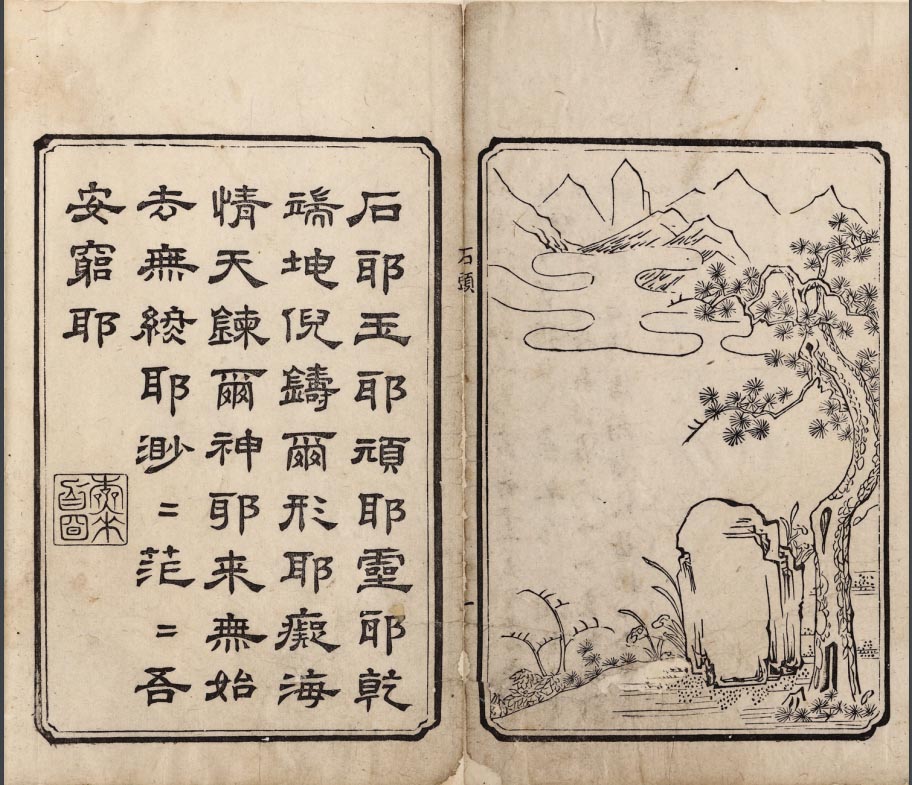 石頭
一
石耶玉耶頑耶靈耶乾
端坤倪鑄爾形耶癡海
情天鍊爾神耶来無始
去無終耶渺〻茫〻吾
安窮耶